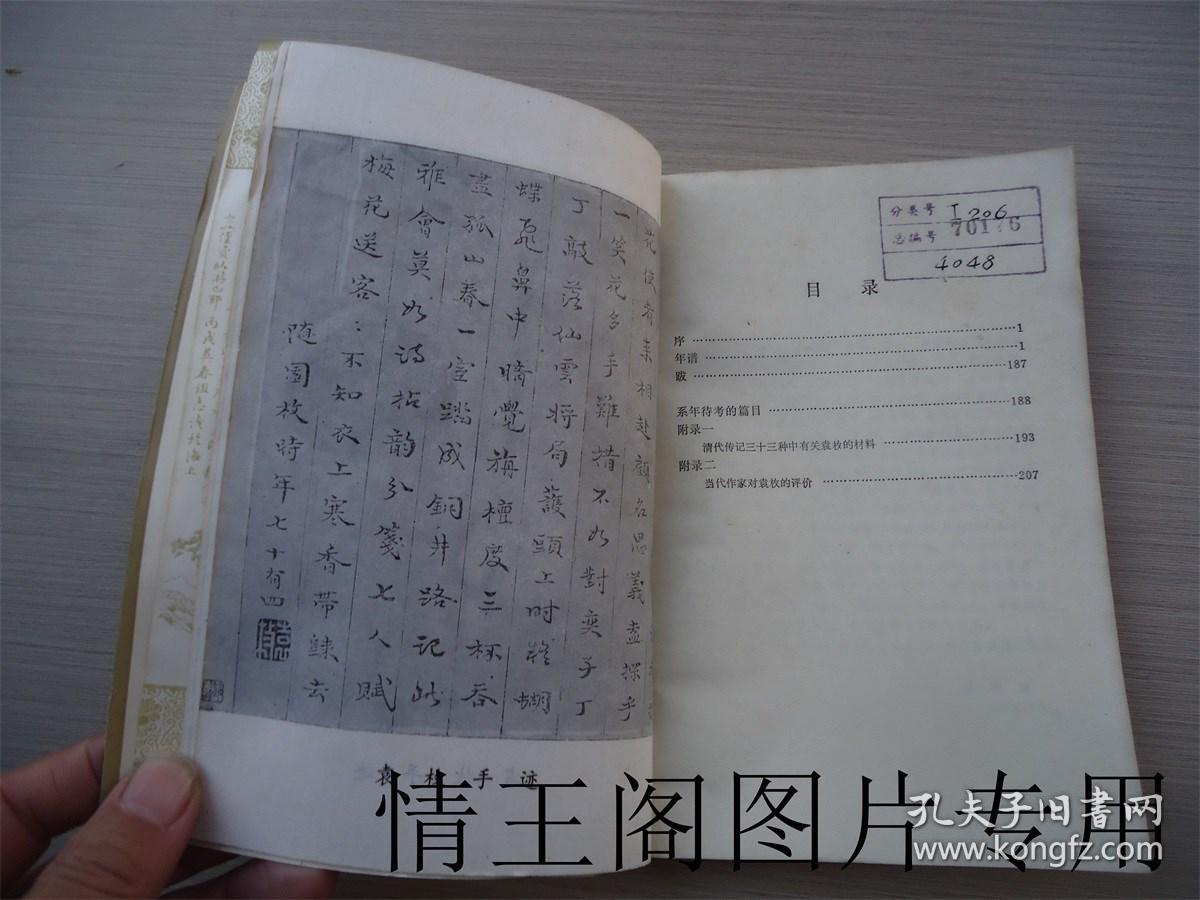 一笑花多手難措不如對奕子丁
丁敲落仙雲將局護頭上時終蝴
蝶飛鼻中暗覺旃檀度三杯吞
盡孤山春一室踏成銅井路記此
雅會莫如詩拈韵分箋七人賦
梅花送客：不知衣上寒香帶歸去
隨園枚時年七十有四
袁枚手迹
分类号 I206
总编号 701
4048
目 录
序 ……1
年谱 ……1
跋 ……187
系年待考的篇目 ……188
附录一
清代传记三十三种中有关袁枚的材料 ……193
附录二
当代作家对袁枚的评价 ……207
情王阁图片专用
孔夫子旧書网
www.kongfz.com